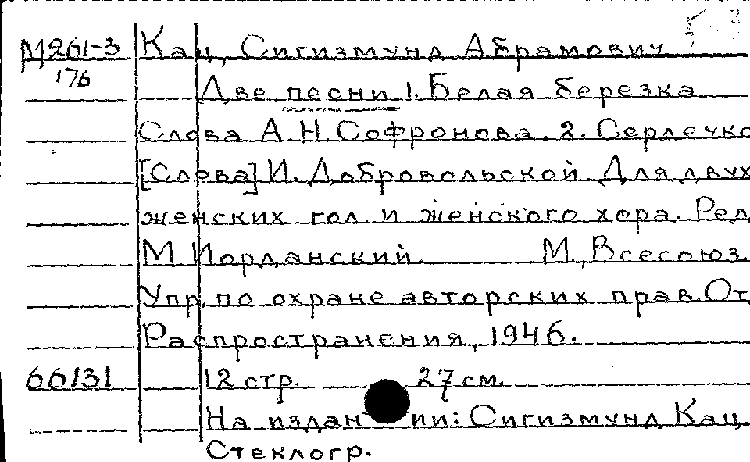 М261-3 Кац, Сигизмунд Абрамович
176
Две песни 1. Белая березка
Слова А.Н. Софронова. 2. Сердечко
[Слова] И. Добровольской Для двух
женских гол. и женского хора. Ред.
М. Иорданский. М., Всесоюз.
Упр. по охране авторских прав. От
Распространения, 1946.
66131 12 стр. 27 см.
На издании: Сигизмунд Кац
Стеклогр.